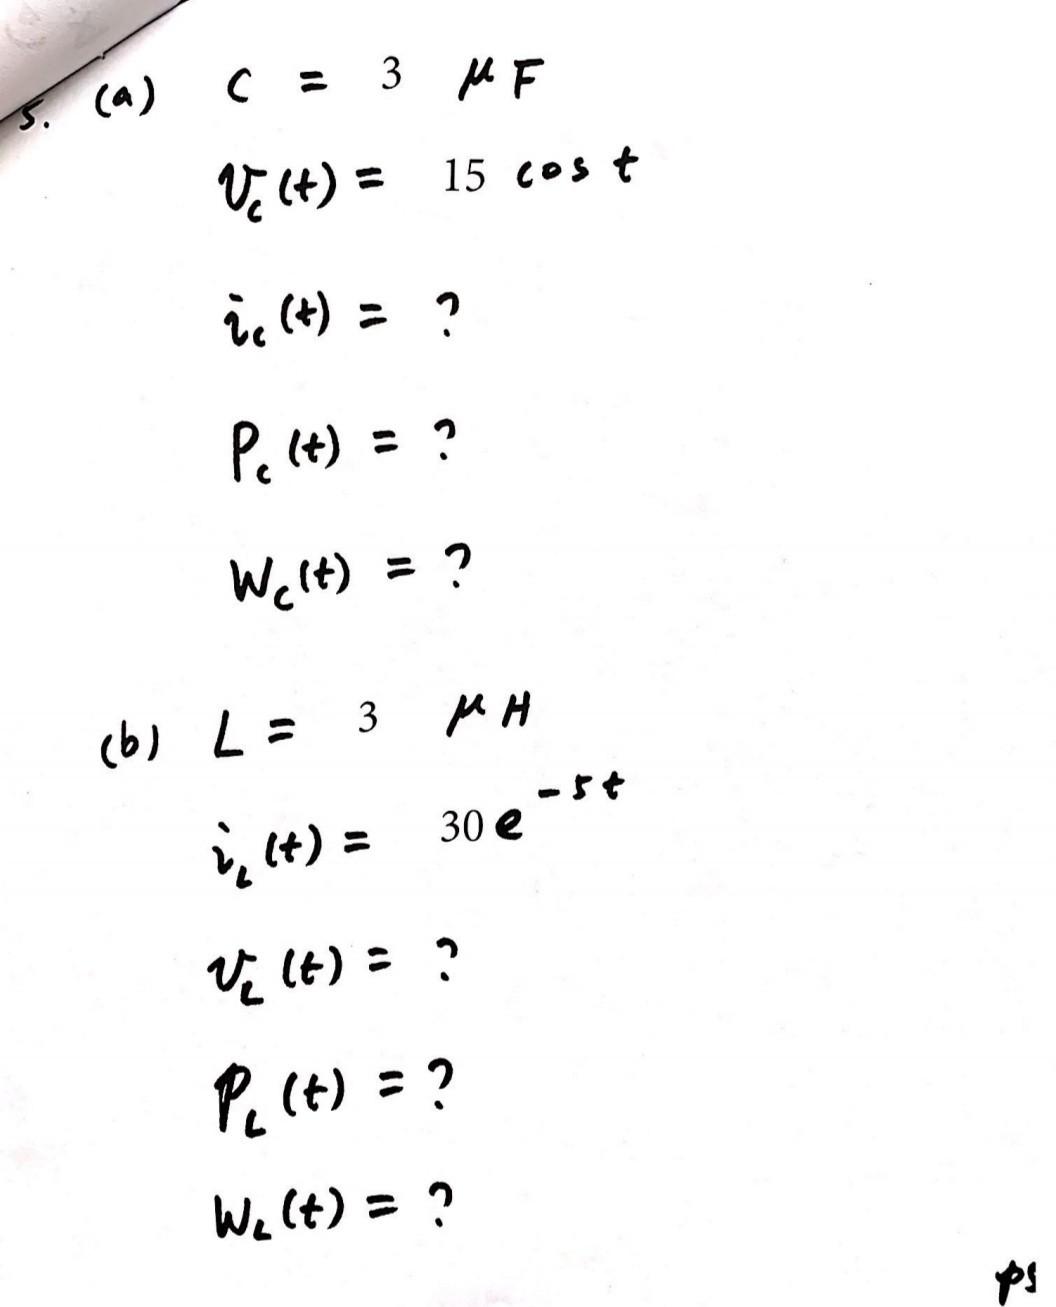 5. (a) C = 3 μF
v_c(t) = 15 cos t
i_c(t) = ?
P_c(t) = ?
W_c(t) = ?
(b) L = 3 μH
i_L(t) = 30 e^{-5t}
v_L(t) = ?
P_L(t) = ?
W_L(t) = ?